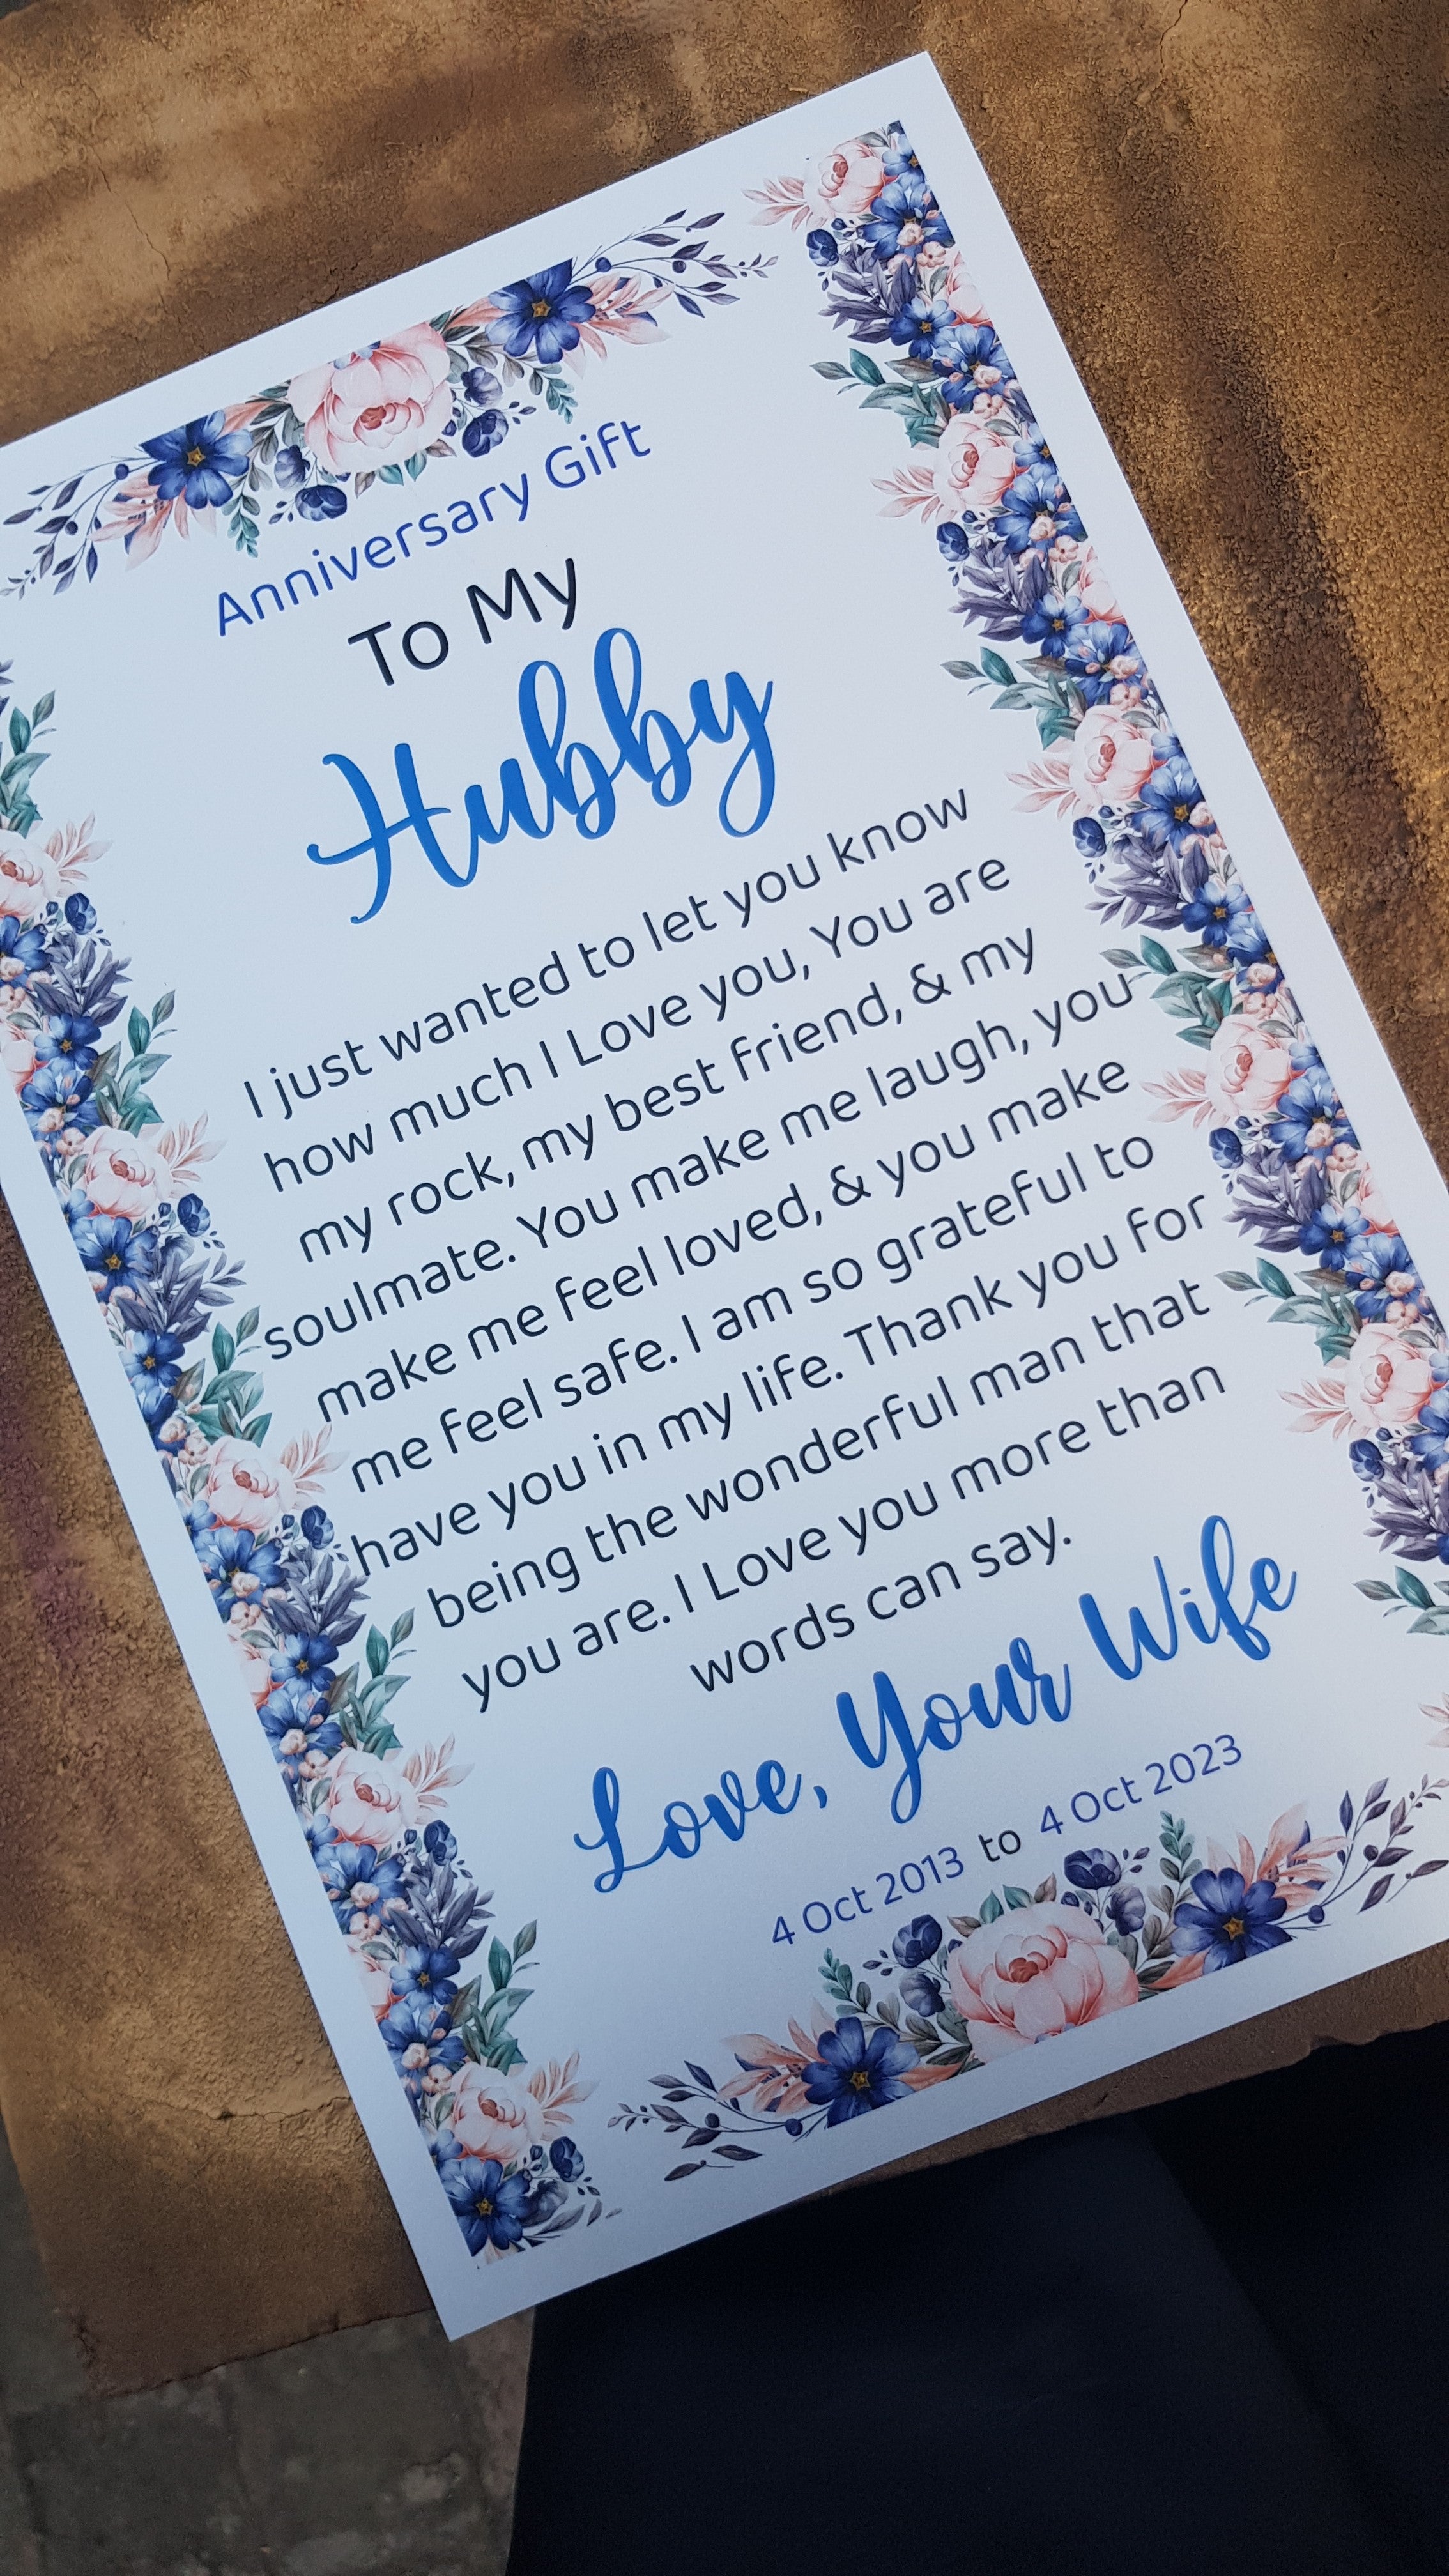 Anniversary Gift
To My
Hubby
I just wanted to let you know
how much I Love you, You are
my rock, my best friend, & my
soulmate. You make me laugh, you
make me feel loved, & you make
me feel safe. I am so grateful to
have you in my life. Thank you for
being the wonderful man that
you are. I Love you more than
words can say.
Love, Your Wife
4 Oct 2013 to 4 Oct 2023